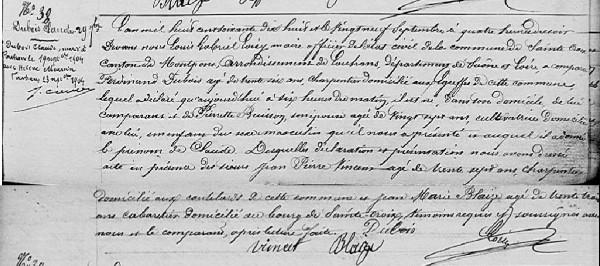 N° 39
Dubois Claude 29 7bre
Dubois Claude marié à
L'an mil huit cent soixante dix huit et le vingt neuf Septembre à quatre heures du soir
Devant nous Louis Gabriel maire officier de l'état civil de la commune de Sainte Croix
Canton de Montpont, arrondissement de Louhans, département de Saône et Loire a comparu
Ferdinand Dubois agé de trente six ans, Charpentier domicilié aux de cette commune
lequel a déclaré qu'aujourd'hui à six heures du matin, il est né dans son domicile de lui
comparant et de Pierrette Buisson son épouse agé de vingt sept ans, cultivatrice domiciliée
avec lui, un enfant du sexe masculin qu'il nous a présenté et auquel il a donné
le prénom de Claude. Lesquelles déclaration et présentation nous avons dressé
acte en présence des sieurs Jean Pierre Vincent agé de trente sept ans Charpentier
domicilié aux de cette commune et Jean Marie Blaize agé de trente trois
ans cabaretier domicilié au bourg de Sainte-Croix, témoins requis et soussignés avec
nous et le comparant, après lecture faite. Dubois
Vincent Blaize